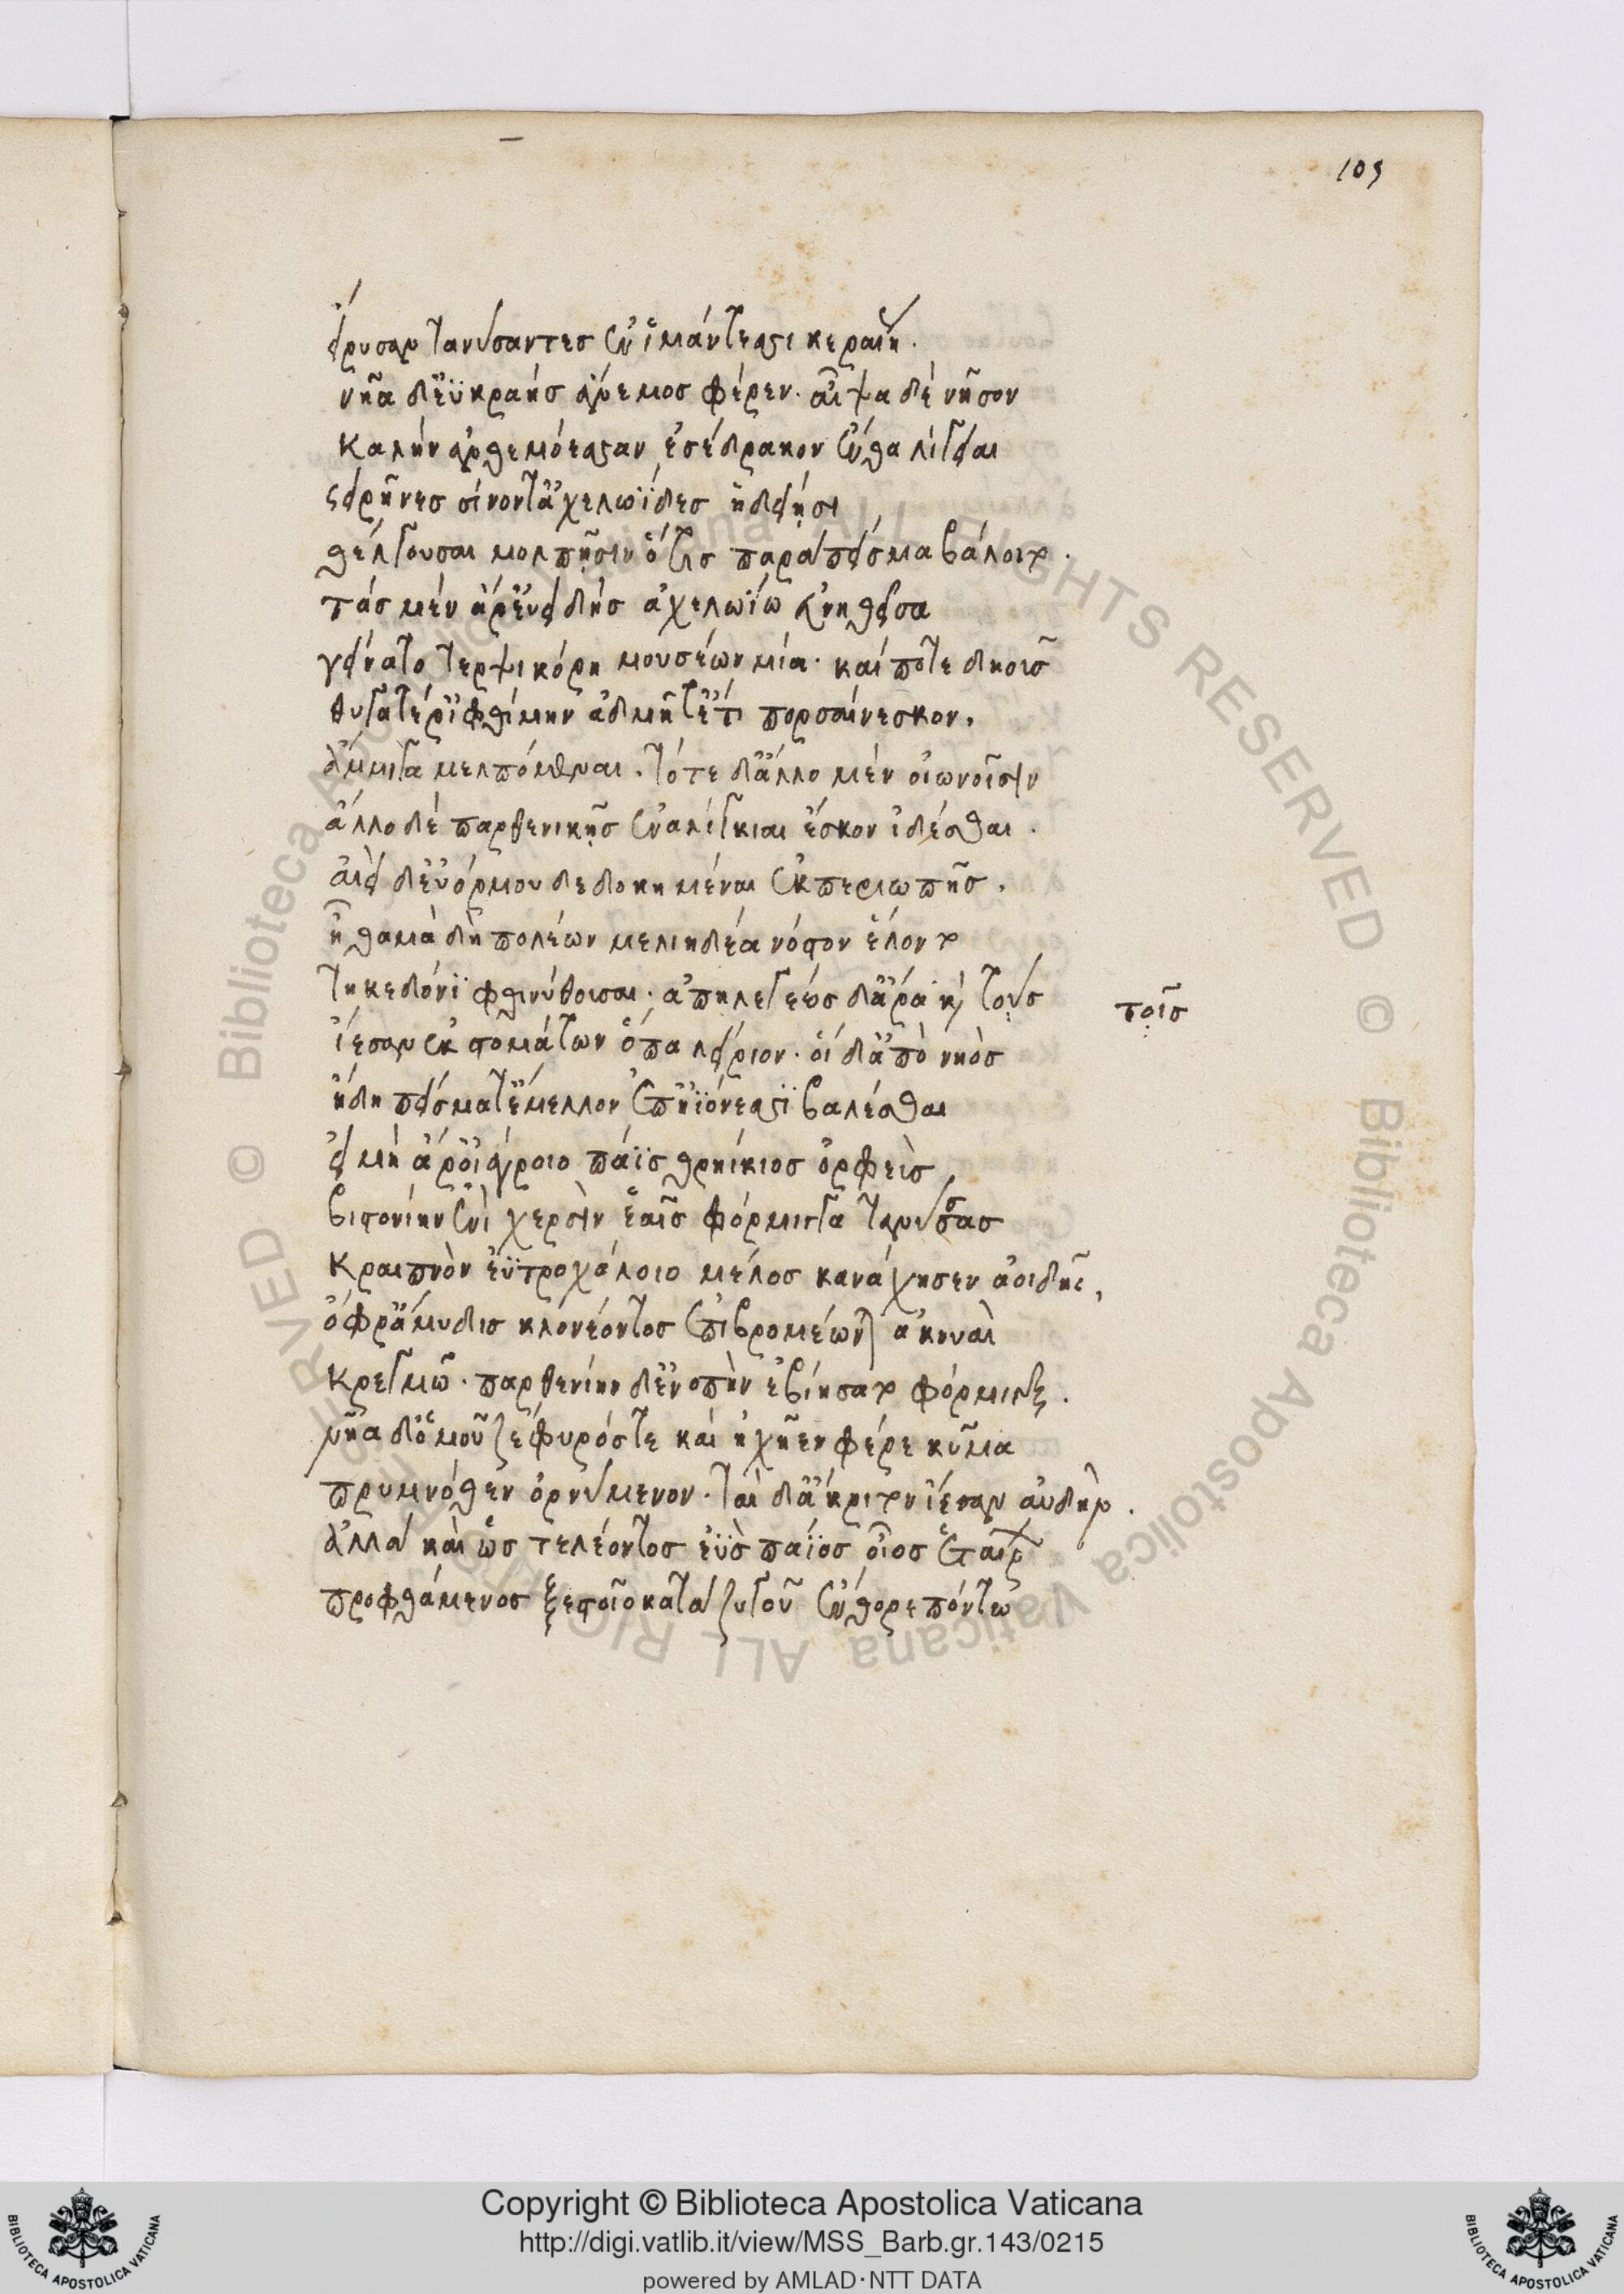 109
εἴρυσαν τανύσαντες ἐν ἱμάντεσσι κεραίην.
νῆα δ' ἐϋκραὴς ἄνεμος φέρεν. αἶψα δὲ νῆσον
καλὴν ἀνθεμόεσσαν ἐσέδρακον ἔνθα λίγειαι
σειρῆνες σίνοντ' ἀχελωΐδες ἡδείῃσι
θέλγουσαι μολπῇσιν ὅτις παρὰ πεῖσμα βάλοιτο.
τὰς μὲν ἄρ' εὐειδὴς ἀχελωΐω εὐνηθεῖσα
γείνατο τερψικόρη μουσέων μία. καί ποτε δηοῦς
θυγατέρ' ἰφθίμην ἀδμῆτ' ἔτι πορσαίνεσκον.
ἄμμιγα μελπόμεναι. τότε δ' ἄλλο μὲν οἰωνοῖσιν
ἄλλο δὲ παρθενικῇς ἐναλίγκιαι ἔσκον ἰδέσθαι.
αἰεὶ δ' εὐόρμου δεδοκημέναι ἐκ περιωπῆς.
ἦ θαμὰ δὴ πολέων μελιηδέα νόστον ἕλοντο
τηκεδόνϊ φθινύθουσαι. ἀπηλεγέως δ' ἄρα καὶ τοὺς
τοῖς
ἵεσαν ἐκ στομάτων ὄπα λείριον. οἱ δ' ἀπὸ νηὸς
ἤδη πείσματ' ἔμελλον ἐπ' ἠϊόνεσσϊ βαλέσθαι
εἰ μὴ ἄρ' οἰάγροιο πάϊς θρηίκιος ὀρφεὺς
βιστονίην ἐνὶ χερσὶν ἑαῖς φόρμιγγα τανύσσας
κραιπνὸν ἐϋτροχάλοιο μέλος κανάχησεν ἀοιδῆς,
ὄφρ' ἄμυδις κλονέοντος ἐπιβρομέωνται ἀκουαὶ
κρεγμῶ. παρθενίην δ' ἐνοπὴν ἐβιήσατο φόρμιγξ.
νῆα δ' ὁμοῦ ζέφυρός τε καὶ ἠχῆεν φέρε κῦμα
πρυμνόθεν ὀρνύμενον. ταὶ δ' ἄκριτον ἵεσαν αὐδήν.
ἀλλὰ καὶ ὣς τελέοντος ἐῢς πάϊς οἶος ἑταίρων
προφθάμενος ξεστοῖο κατὰ ζυγοῦ ἔνθορε πόντω
© Biblioteca Apostolica Vaticana ALL RIGHTS RESERVED © Biblioteca Apostolica Vaticana ALL RIGHTS RESERVED
BIBLIOTECA APOSTOLICA VATICANA
Copyright © Biblioteca Apostolica Vaticana
http://digi.vatlib.it/view/MSS_Barb.gr.143/0215
powered by AMLAD·NTT DATA
BIBLIOTECA APOSTOLICA VATICANA